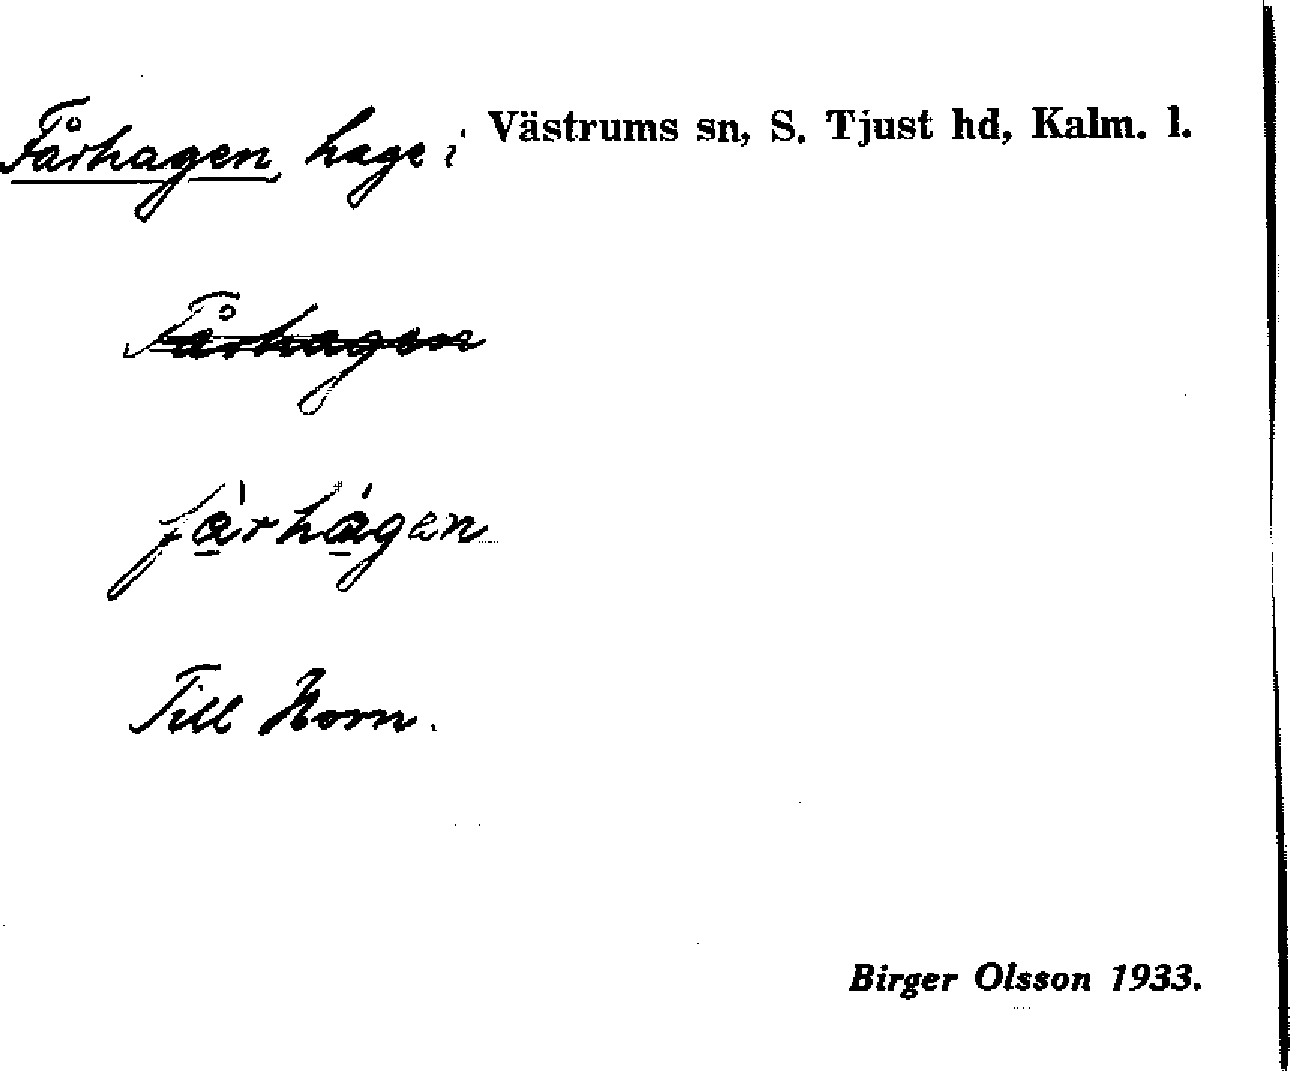 Fårhagen, hage i Västrums sn, S. Tjust hd, Kalm. l.
Fårhagen
Till Horn.
Birger Olsson 1933.